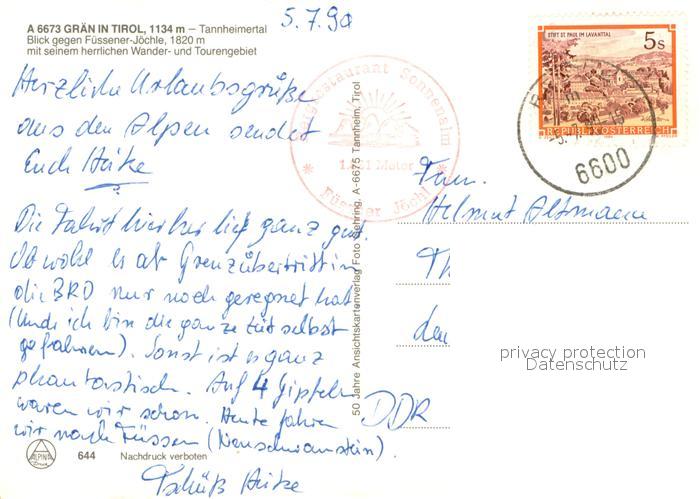 5.7.90
A 6673 GRÄN IN TIROL, 1134 m – Tannheimertal
Blick gegen Füssener-Jöchle, 1820 m
mit seinem herrlichen Wander- und Tourengebiet
Herzliche Urlaubsgrüße
aus den Alpen sendet
Euch Heike
Die Fahrt hierher lief ganz gut.
Obwohl es ab Grenzübertritt in
die BRD nur noch geregnet hat
(Und ich bin die ganze Zeit selbst
gefahren). Sonst ist es ganz
phantastisch. Auf 4 Gipfeln
waren wir schon. Heute fahren
wir nach Füssen (Neuschwanstein).
Tschüß Heike
ALPINA
Druck
644
Nachdruck verboten
50 Jahre Ansichtskartenverlag Foto Wehring, A-6675 Tannheim, Tirol
restaurant Sonnenalm
Meter
Füssener Jöchl
STIFT ST. PAUL IM LAVANTTAL
5s
REPUBLIK ÖSTERREICH
6600
Fam.
Helmut Altmann
Th
den
DDR
privacy protection
Datenschutz